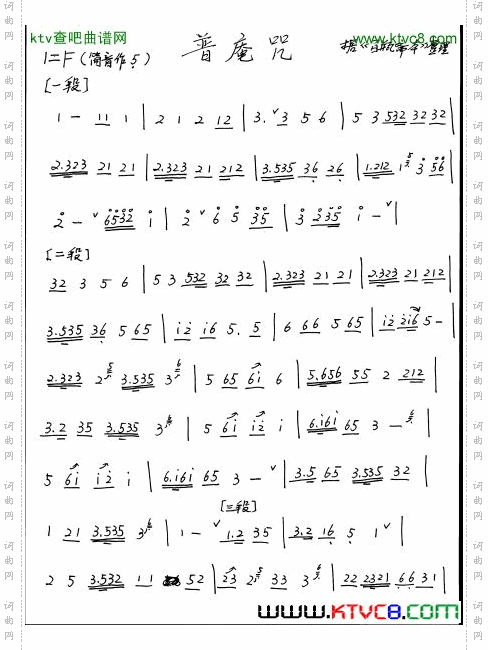 ktv查吧曲谱网
www.ktvc8.com
普庵咒
1=F（筒音作5）
[一段]
1 - 11 1 | 2 1 2 12 | 3. ˅3 5 6 | 5 3 532 32 32 |
2.323 21 21 | 2.323 21 212 | 3.535 36 26 | 1.212 1 3 56 |
2 - ˅6532 i | 2 ˅6 5 35 | 3 235 i - ˅|
[二段]
32 3 5 6 | 5 3 532 32 32 | 2.323 21 21 | 2.323 21 212 |
3.535 36 5 65 | i2 i6 5. 5 | 6 66 5 65 | i2 2i6 5 - |
2.323 2 3.535 3 | 5 65 6i 6 | 5.656 55 2 212 |
3.2 35 3.535 3 | 5 6i i2 i | 6.i6i 65 3 - |
5 6i i2 i | 6.i6i 65 3 - ˅| 3.5 65 3.535 32 |
[三段]
1 21 3.535 3 | 1 - ˅1.2 35 | 3.2 16 5 1˅|
2 5 3.532 11 52 | 23 2 33 3 | 22 2321 66 31 |
www.KTVC8.com
词曲网